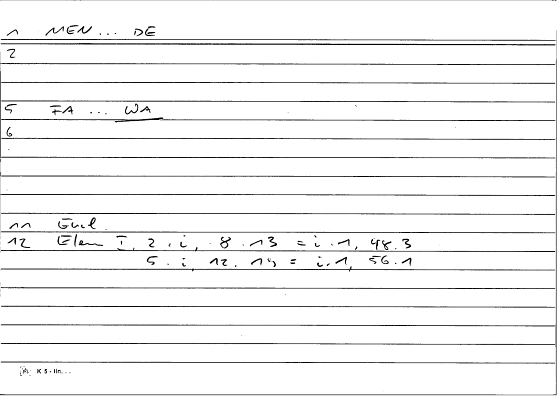 1 MEN... DE
2
5 FA ... WA
6
11 Eucl.
12 Elem I, 2 . i, 8 . 13 = i . 1, 48.3
5 . i, 12. 14 = i . 1, 56.1
K 5 - lin...